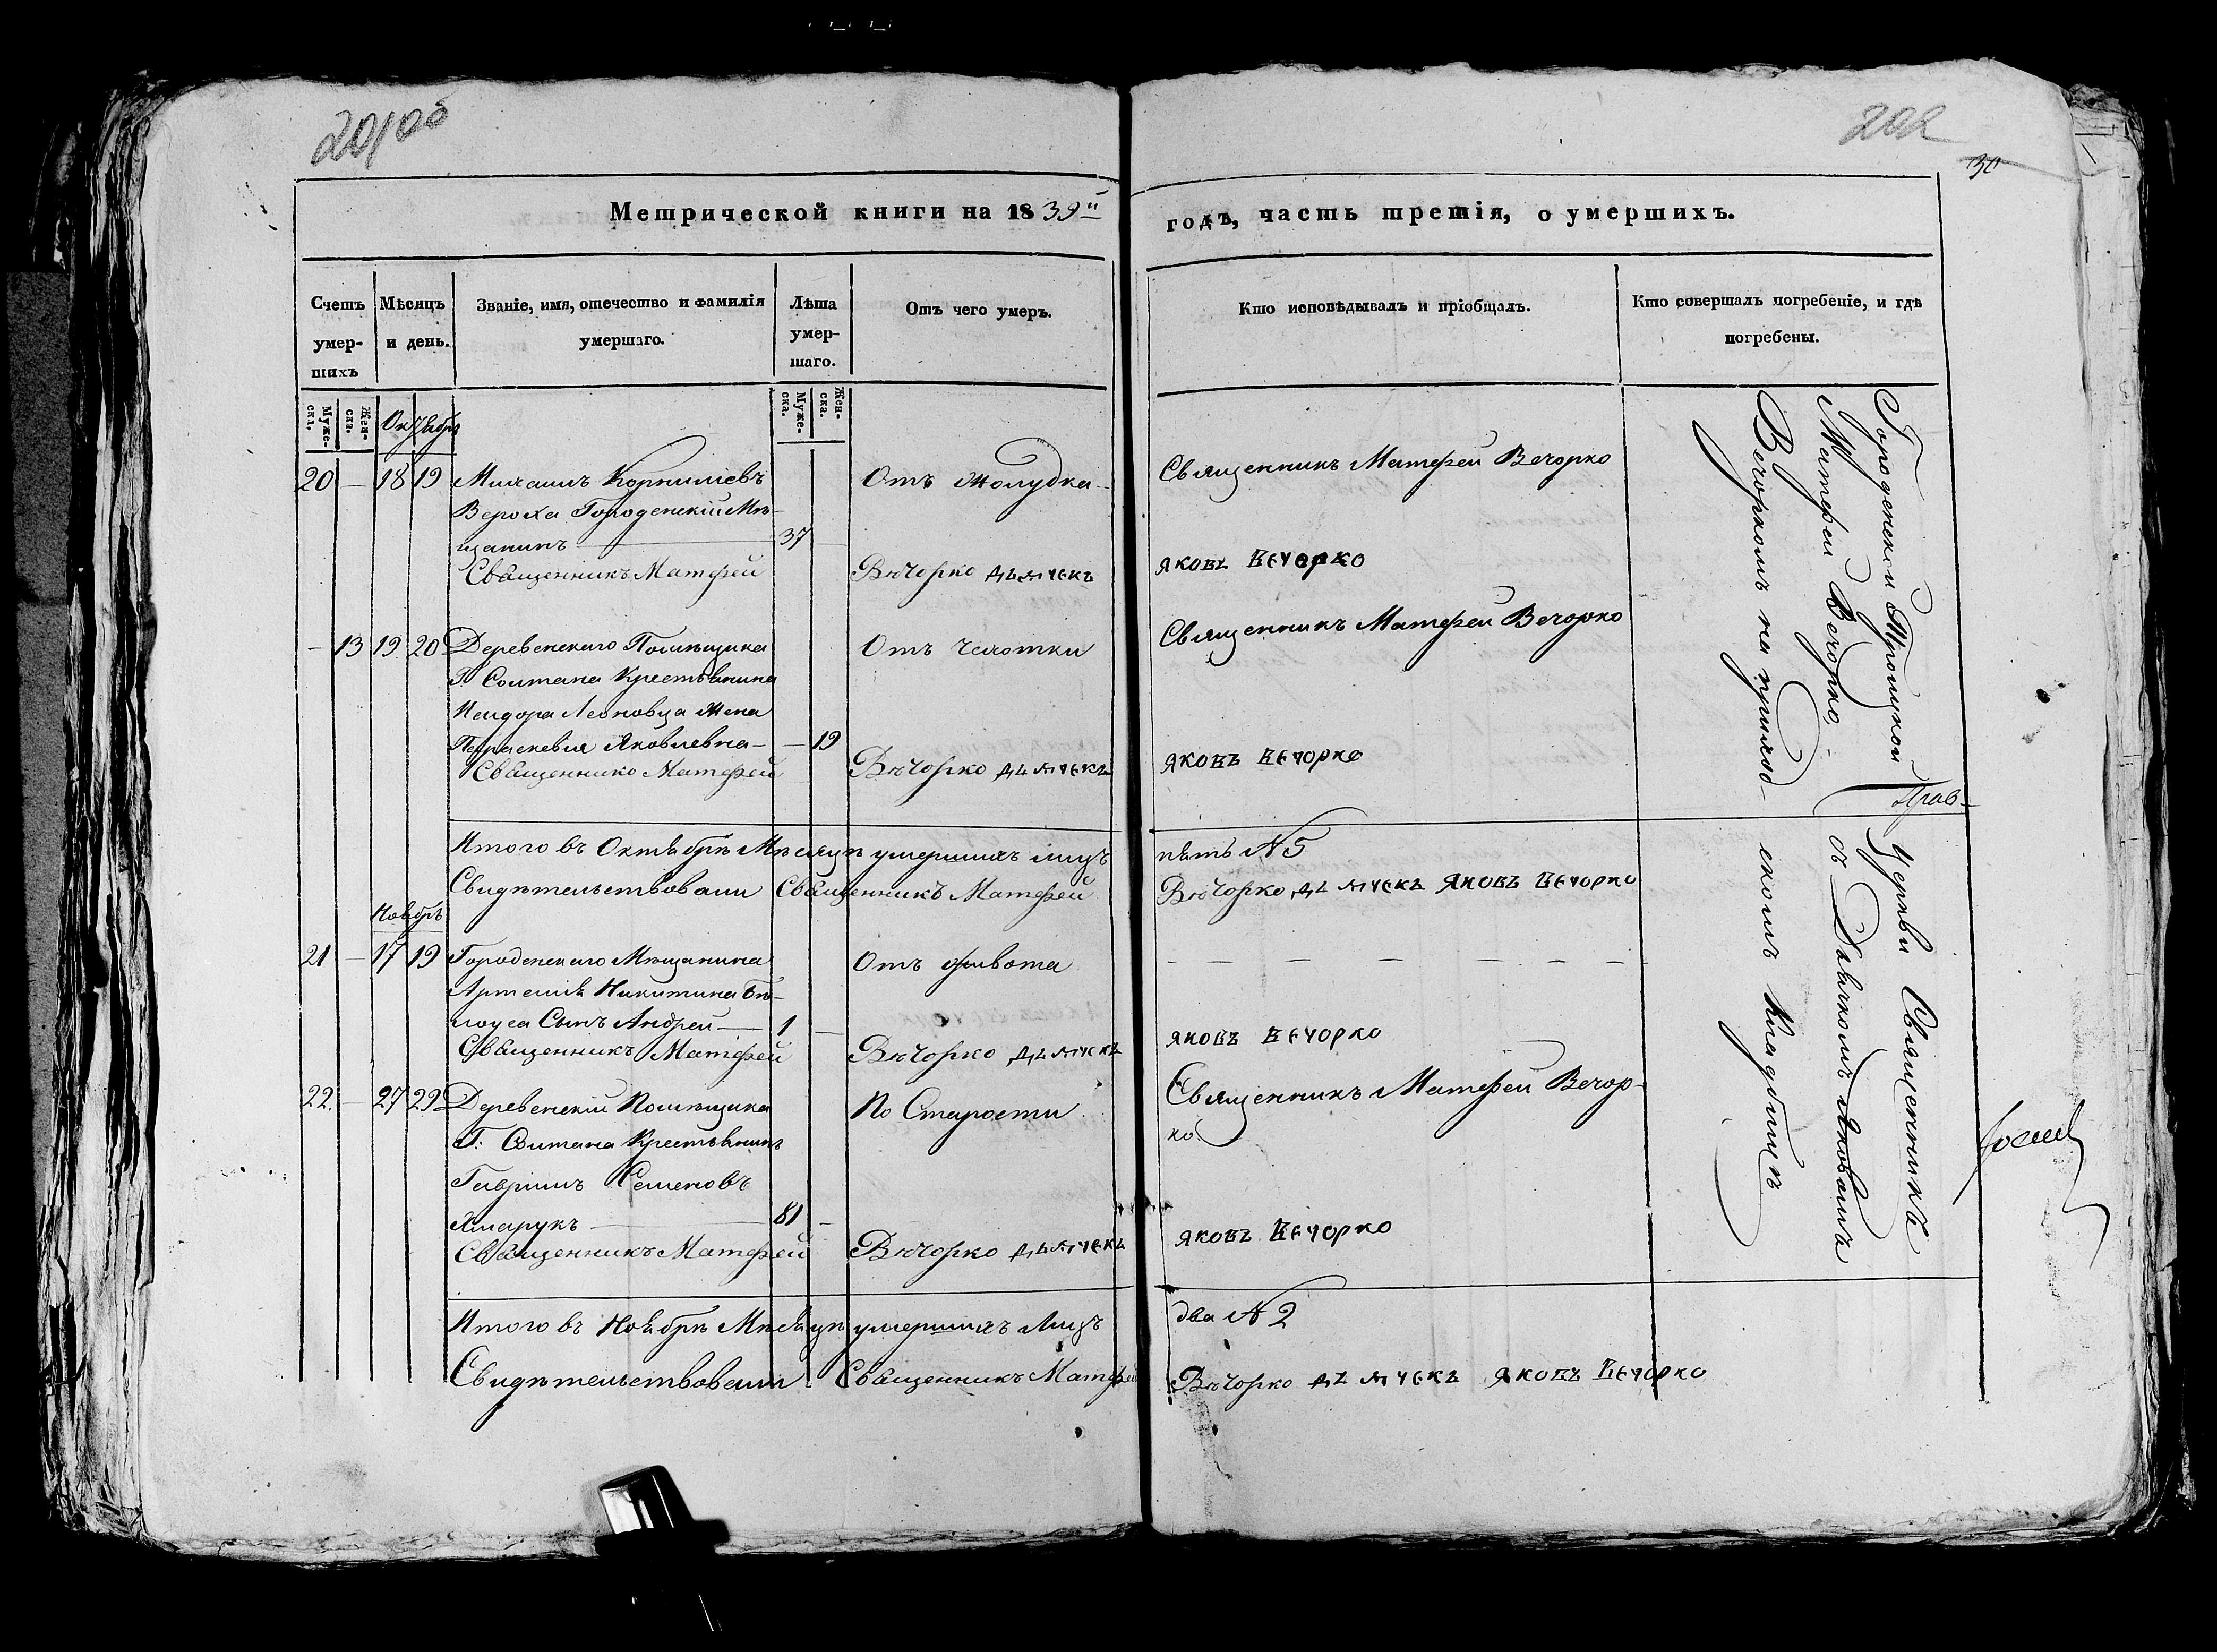 202
30
Метрической книги на 1839й
годъ, часть третія, о умершихъ.
Счетъ умер-
шихъ
Мѣсяцъ
и день.
Званіе, имя, отечество и фамилія
умершаго.
Лѣта
умер-
шаго.
Отъ чего умеръ.
Кто исповѣдывалъ и пріобщалъ.
Кто совершалъ погребеніе, и гдѣ
погребены.
Муже-
ска.
Жен-
ска.
Октябрь
Муже-
ска.
Жен-
ска.
20 — 18 19 Михаилъ Корниліевъ
Вероха Городенскій Мѣ-
щанинъ — 37
Отъ Жолудка
Священникъ Матфей Вечорко
Священникъ Матфей Вѣчорко дьячекъ
яковъ Вечорко
— 13 19 20 Деревенскаго Помѣщика
Г. Солтана Крестьянина
Исидора Леоновца Жена
Параскевия Яковлевна — — 19
Отъ Чахотки
Священникъ Матфей Вечорко
Священникъ Матфей Вѣчорко дьячекъ
яковъ Вечорко
Итого въ Октябрѣ Мѣсяцѣ умершихъ лицъ
пять № 5
Свидѣтельствовали Священникъ Матфей
Вѣчорко дьячекъ Яковъ Вечорко
Ноябрь
21 — 17 19 Городенскаго Мѣщанина
Артемія Никитина Бѣ-
лоуса Сынъ Андрей — 1 —
Отъ живота
— — — — — — —
Священникъ Матфей Вѣчорко дьячекъ
яковъ Вечорко
22. — 27 29 Деревенскій Помѣщика
Г: Солтана Крестьянинъ
Гавриилъ Семеновъ
— 81 —
По Старости
Священникъ Матфей Вечор-
ко
Священникъ Матфей Вѣчорко дьячекъ
яковъ Вечорко
Итого въ Ноябрѣ Мѣсяцѣ умершихъ Лицъ
два № 2
Свидѣтельствовали Священникъ Матфей
Вѣчорко дьячекъ яковъ Вечорко
Городенской Троицкой Церкви Священникъ
Матфей Вечорко, съ Дьячкомъ Яковомъ
Вечоркомъ на приход-
скомъ Кладбищѣ